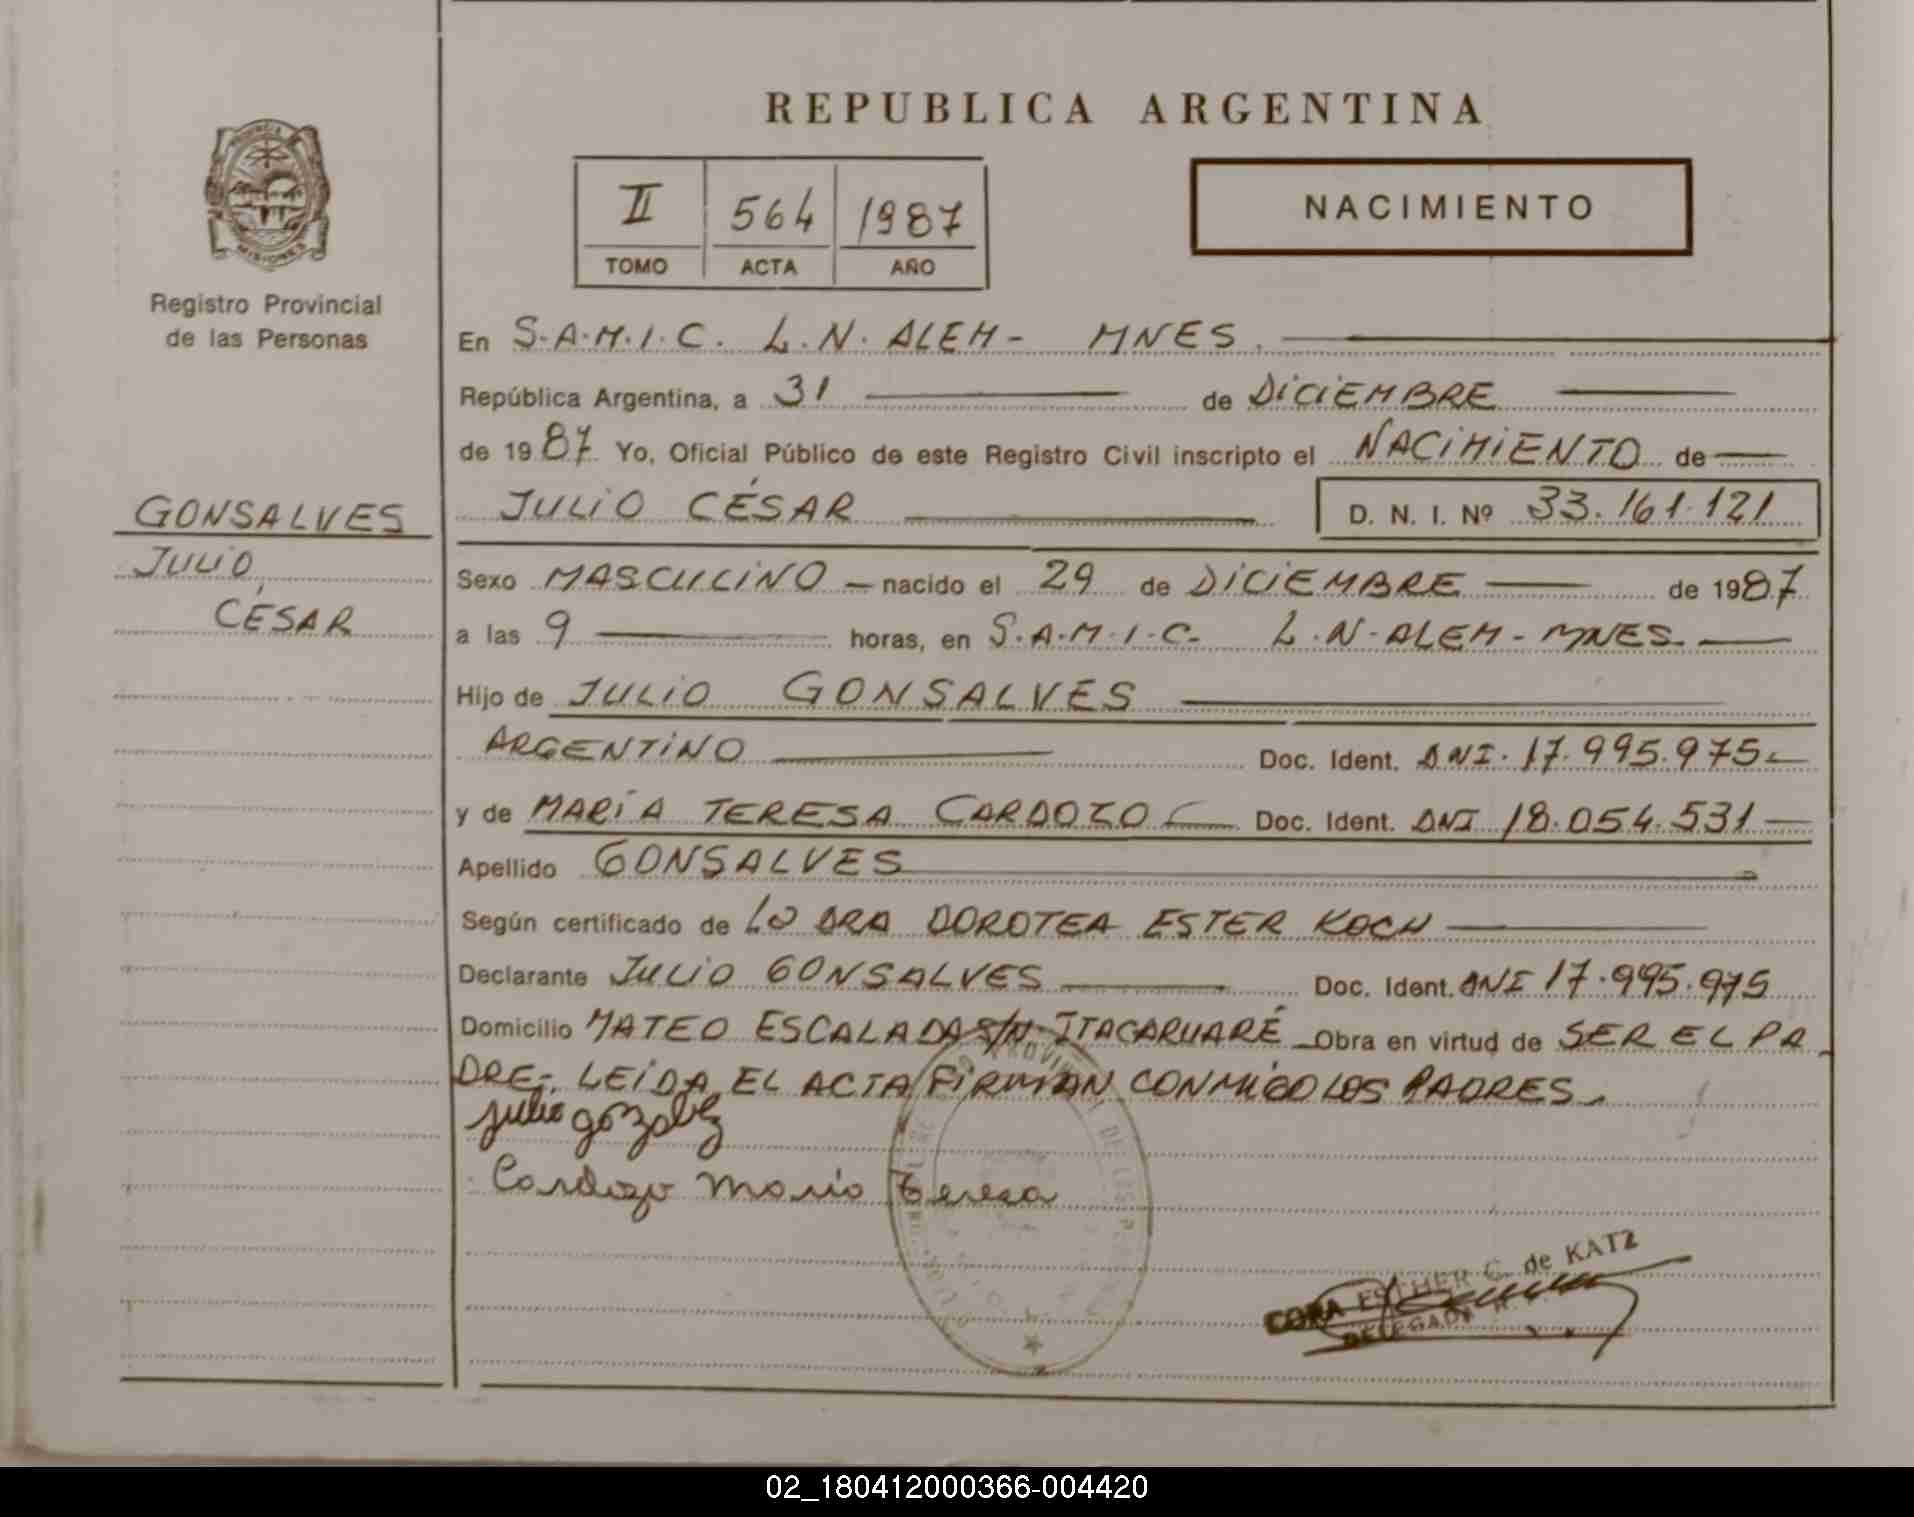 REPUBLICA ARGENTINA
II 564 1987
TOMO ACTA AÑO
NACIMIENTO
PROVINCIA
MISIONES
Registro Provincial
de las Personas
GONSALVES
JULIO
CÉSAR
En S.A.M.I.C. L.N. ALEM - MNES.
República Argentina, a 31 de DICIEMBRE
de 1987 Yo, Oficial Público de este Registro Civil inscripto el NACIMIENTO de
JULIO CÉSAR D. N. I. Nº 33.161.121
Sexo MASCULINO - nacido el 29 de DICIEMBRE de 1987
a las 9 horas, en S.A.M.I.C. L.N. ALEM - MNES.
Hijo de JULIO GONSALVES
ARGENTINO Doc. Ident. DNI. 17.995.975
y de MARÍA TERESA CARDOZO Doc. Ident. DNI 18.054.531
Apellido GONSALVES
Según certificado de LO DRA DOROTEA ESTER KOCH
Declarante JULIO GONSALVES Doc. Ident. DNI 17.995.975
Domicilio MATEO ESCALADA S/N - ITACARUARÉ Obra en virtud de SER EL PA
DRE.- LEÍDA EL ACTA FIRMAN CONMIGO LOS PADRES.
julio gozalez
Cardozo Maria Teresa
CORA ESTHER C. de KATZ
DELEGADA
02_180412000366-004420